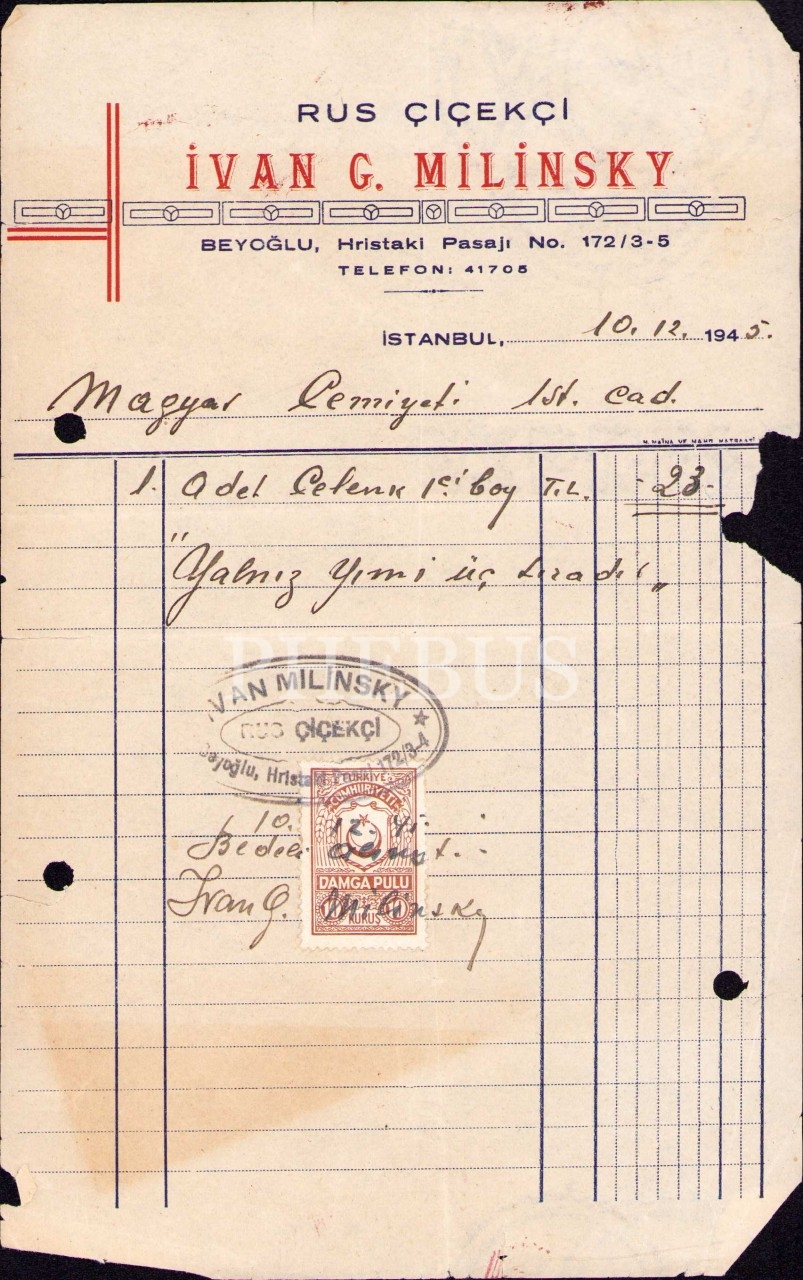 RUS ÇİÇEKÇİ
İVAN G. MİLİNSKY
BEYOĞLU, Hristaki Pasajı No. 172/3-5
TELEFON: 41705
İSTANBUL, 10. 12. 1945.
Magyar Cemiyeti Ist. cad.
1. Adet Çelenk 1ci boy T.L. -23-
"Yalnız Yirmi üç liradır"
PHEBUS
İVAN MİLİNSKY
RUS ÇİÇEKÇİ
Beyoğlu, Hristaki Pasajı 172/3-4
TÜRKİYE
CUMHURİYETİ
10. 12. 45.
Bedeli alınmıştı.
DAMGA PULU
Ivan G. Milinsky
KURUŞ